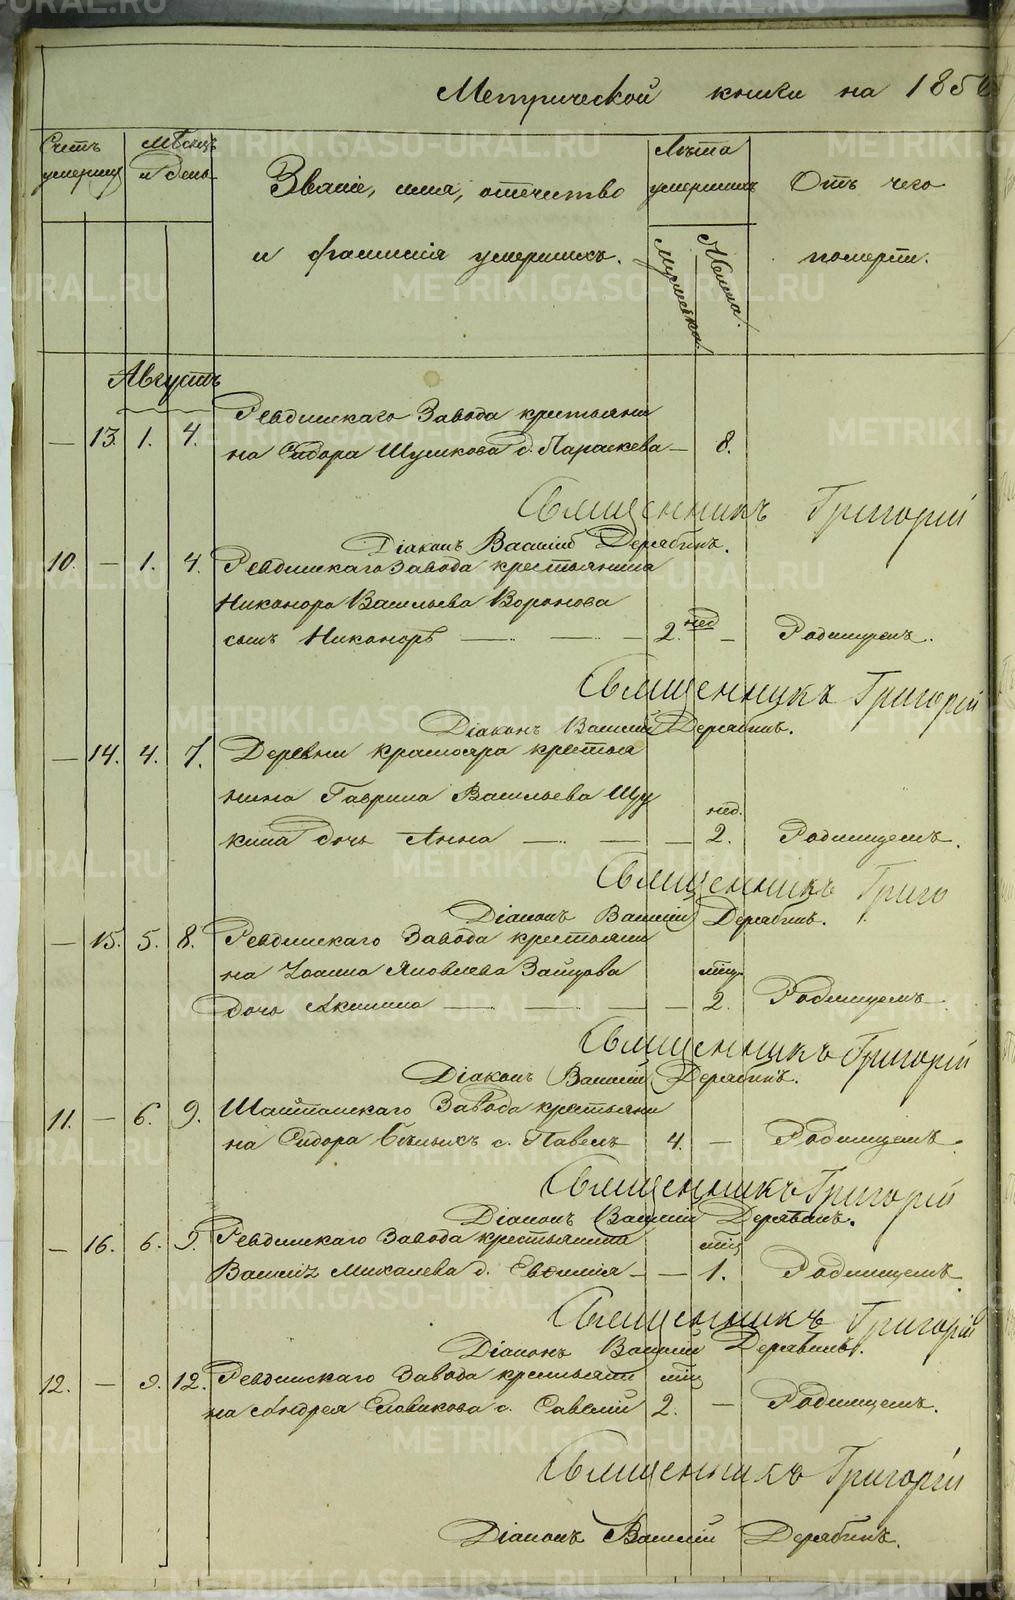 Метрической книги на 185
Счетъ умершихъ
Мѣсяцъ и день
Званіе, имя, отечество
и фамилія умершихъ.
Лѣта умершихъ
Мужеска.
Женска.
Отъ чего
померли.
Августъ
Ревдинскаго Завода крестьяни
— 13. 1. 4. на Сидора Шумкова д. Параскева — 8.
Священникъ Григорій
Діаконъ Василій Дерябинъ.
10. — 1. 4. Ревдинскаго Завода крестьянина
Никонора Васильева Воронова
сынъ Никоноръ — — — 2. нед — Родимцемъ.
Священникъ Григорій
Діаконъ Василій Дерябинъ.
— 14. 4. 7. Деревни Краснояра крестья
нина Гаврила Васильева Щу
кина дочь Анна — — — нед. 2. Родимцемъ.
Священникъ Григо
Діаконъ Василій Дерябинъ.
— 15. 5. 8. Ревдинскаго Завода крестьяни
на Іоанна Яковлева Зайцова
дочь Акилина — — — — мѣц. 2. Родимцемъ
Священникъ Григорій
Діаконъ Василій Дерябинъ.
11. — 6. 9. Шайтанскаго Завода крестьяни
на Сидора Бѣлыхъ с. Павелъ 4. — Родимцемъ.
Священникъ Григорій
Діаконъ Василій Дерябинъ.
— 16. 6. 9. Ревдинскаго Завода крестьянина
Михалева д. Евѳимія — — мѣц 1. Родимцемъ
Священникъ Григорій
Діаконъ Василій Дерябинъ.
12. — 9. 12. Ревдинскаго Завода крестьяни
на Андрея с. Савелій мѣц 2. — Родимцемъ.
Священникъ Григорій
Діаконъ Василій Дерябинъ.
METRIKI.GASO-URAL.RU